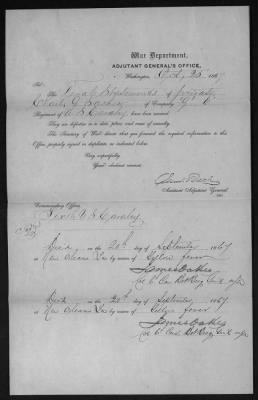 War Department,
ADJUTANT GENERAL'S OFFICE,
Washington, Oct. 25 1867
Sir:
The Final Statements of
of Company "G"
Regiment of U S Cavalry, have been received.
They are defective as to date, place and cause of casualty.
The Secretary of War directs that you forward the required information to this
Office, properly signed in duplicate as indicated below.
Very respectfully,
Your obedient servant,
Assistant Adjutant General.
Commanding Officer,
U S Cavalry
Died, on the 20th day of September 1867
at New Orleans La by reason of Yellow fever
James Oakes
Col 6th Cav
Died, on the 20th day of September, 1867.
at New Orleans La by reason of Yellow fever
James Oakes
Col 6th Cav